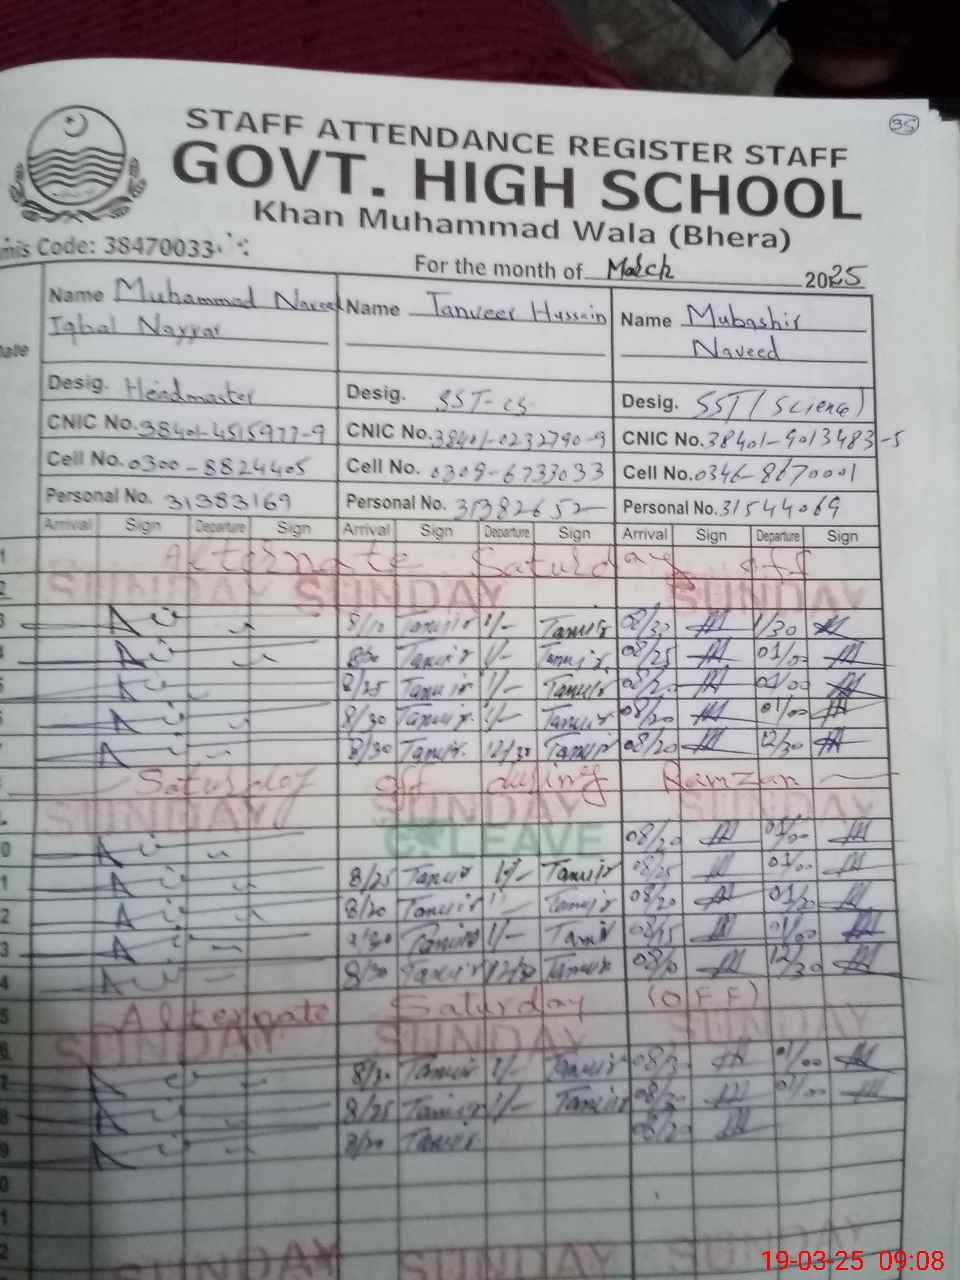 35
STAFF ATTENDANCE REGISTER STAFF
GOVT. HIGH SCHOOL
Khan Muhammad Wala (Bhera)
mis Code: 38470033
For the month of March 2025
Name Muhammad Naveed Name Tanveer Hussain Name Mubashir
Iqbal Nayyar Naveed
Date
Desig. Headmaster Desig. SST-CS Desig. SST (Science)
CNIC No. 38401-4515977-9 CNIC No. 38401-0232790-9 CNIC No. 38401-9013483-5
Cell No. 0300-8824405 Cell No. 0308-6733033 Cell No. 0346-8670001
Personal No. 31383169 Personal No. 31382652 Personal No. 31544069
Arrival Sign Departure Sign Arrival Sign Departure Sign Arrival Sign Departure Sign
1 Alternate Saturday off
2 SUNDAY SUNDAY SUNDAY
3 8/10 Tanvir 1/- Tanvir 08/30 1/30
4 8/30 Tanvir 1/- Tanvir 08/25 01/00
5 8/25 Tanvir 1/- Tanvir 08/20 01/00
6 8/30 Tanvir 1/- Tanvir 08/20 01/00
7 8/30 Tanvir 12/30 Tanvir 08/20 12/30
Saturday off during Ramzan
SUNDAY SUNDAY SUNDAY
0 C LEAVE 08/20 01/00
1 8/25 Tanvir 1/- Tanvir 08/25 01/00
2 8/20 Tanvir Tanvir 08/20 01/20
3 Tanvir 1/- Tanvir 08/15 01/00
4 8/30 Tanvir 12/30 Tanvir 12/30
5 Alternate Saturday (OFF)
6 SUNDAY SUNDAY SUNDAY
7 8/30 Tanvir 1/- Tanvir 01/00
8 8/25 Tanvir 1/- Tanvir 08/20 01/00
9 8/20 Tanvir 08/20
0
1
2
SUNDAY SUNDAY SUNDAY
19-03-25 09:08